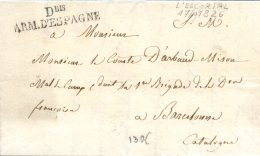 Dᴮᴵˢ
ARM. D'ESPAGNE
L'ESCORIAL
17/9/1826
S. M.
A Monsieur
Monsieur le Comte D'arbaud
Mal de Camp Cdant la 1re Brigade de la Don
francaise
a Barcelonne
Catalogne